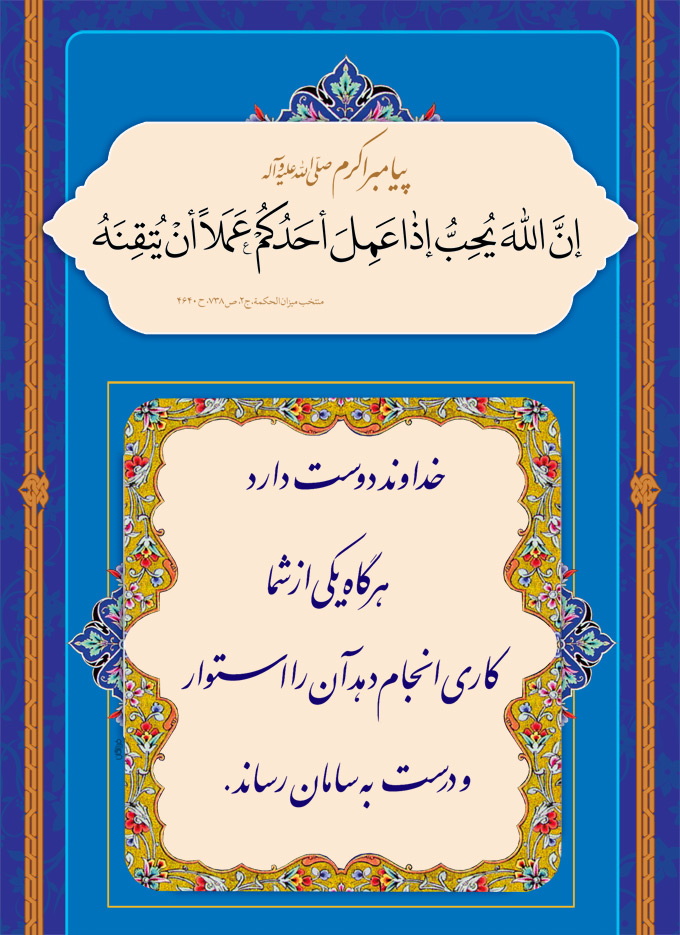 پیامبر اکرم صلّی الله علیه و آله
إنَّ اللهَ یُحِبُّ إذٰا عَمِلَ أحَدُکُمْ عَمَلاً أنْ یُتقِنَهُ
منتخب میزان الحکمة، ج۲، ص۷۳۸، ح۴۶۴۰
خداوند دوست دارد
هرگاه یکی از شما
کاری انجام دهد آن را استوار
و درست به سامان رساند.